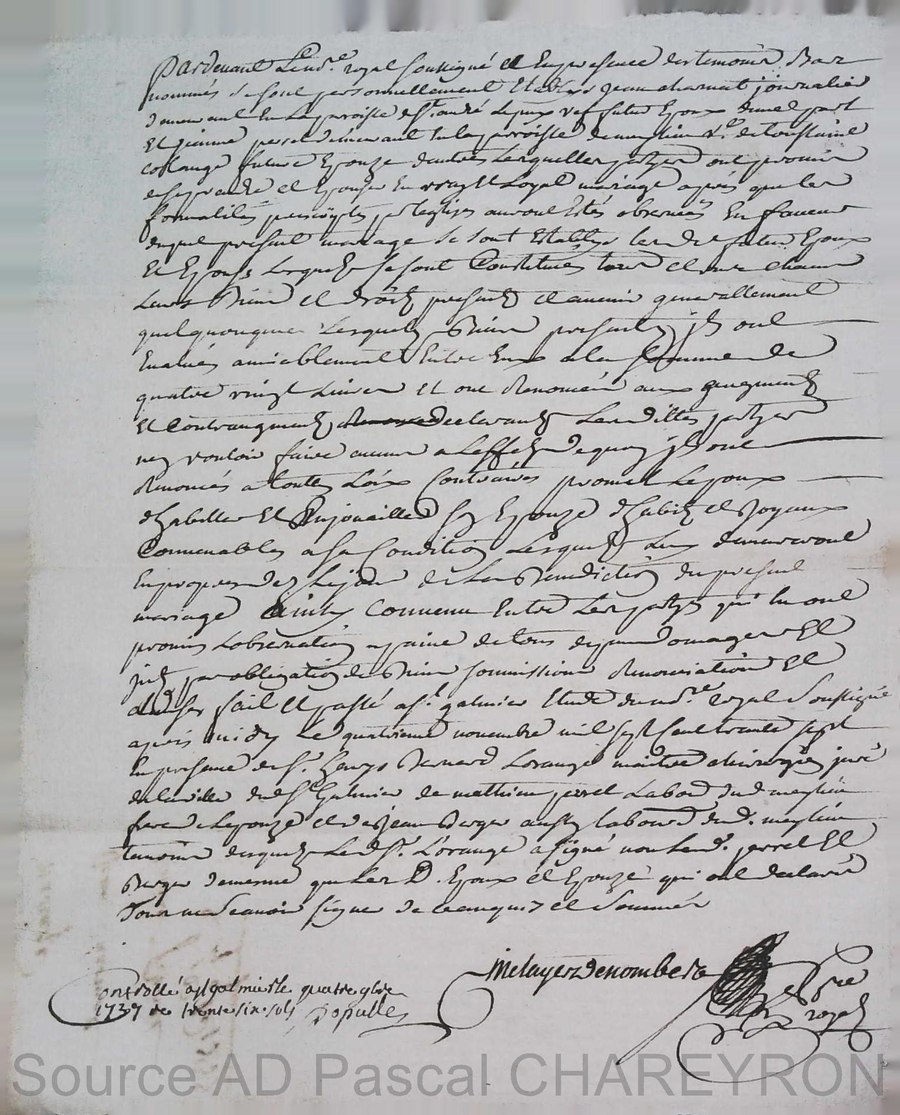 Pardevant Le no.re royal soussigné et En presence des temoins Bas
nommés se sont personnellement Etablis jean charnat journalier
demeurant En La parroisse de St. andré Le puy futur Epoux d'une part
Et jeanne perret demeurant En la parroisse de meylieu
future Epouze d'autre Lesquelles partyes ont promis
se prendre et Epouser En vray Et Loyal mariage aprés que les
formalités par l'eglize auront Estés observés En faveur
duquel present mariage se sont Establys les futur Epoux
Et Epouse Lesquels se sont Constitués tous et un chacun
Leurs Biens et droits presents et avenir generallement
quelquonques Lesquels Biens presents jls ont
Evalués amiablement Entre Eux a la somme de
quatre vingt Livres Et ont Renoncés aux augments
Et declarant Lesdittes partyes
ne vouloir faire aucun a L'effet de quoy jls ont
Renoncés a toutes Loix Contraires promet L'epoux
d'habiller Et Enjoailler son Epouze d'habits et Joyaux
Convenables a sa Condition Lesquels Luy demeureront
En propres des Le jour de La Benediction du present
mariage Ainsy Convenu Entre Les partyes qui En ont
promis L'observation a paine de tous depans domages Et
par obligation de Biens soumissions Renonciations Et
clauses fait Et passé a St. galmier Etude du no.re royal Soussigné
aprés midy Le quatrieme novembre mil sept Cent trente sept
En presence de Sr. Bernard Lorange maitre chirurgien juré
de la ville de St. Galmier de mathieu perret Labour. dud. meylieu
frere de L'epouze et de jean Berger aussy labour. dud. meylieu
temoins desquels Led. Sr. L'orange a signé non Led. perret Et
Berger de mesme que Les d. Epoux et Epouze qui ont declaré
Sçavoir signer de ce enquis et Sommés
melayer denombero
no.re royal
Controllé a St galmier le quatre 9bre
1737 reçu trente six sols Populle
Source AD Pascal CHAREYRON